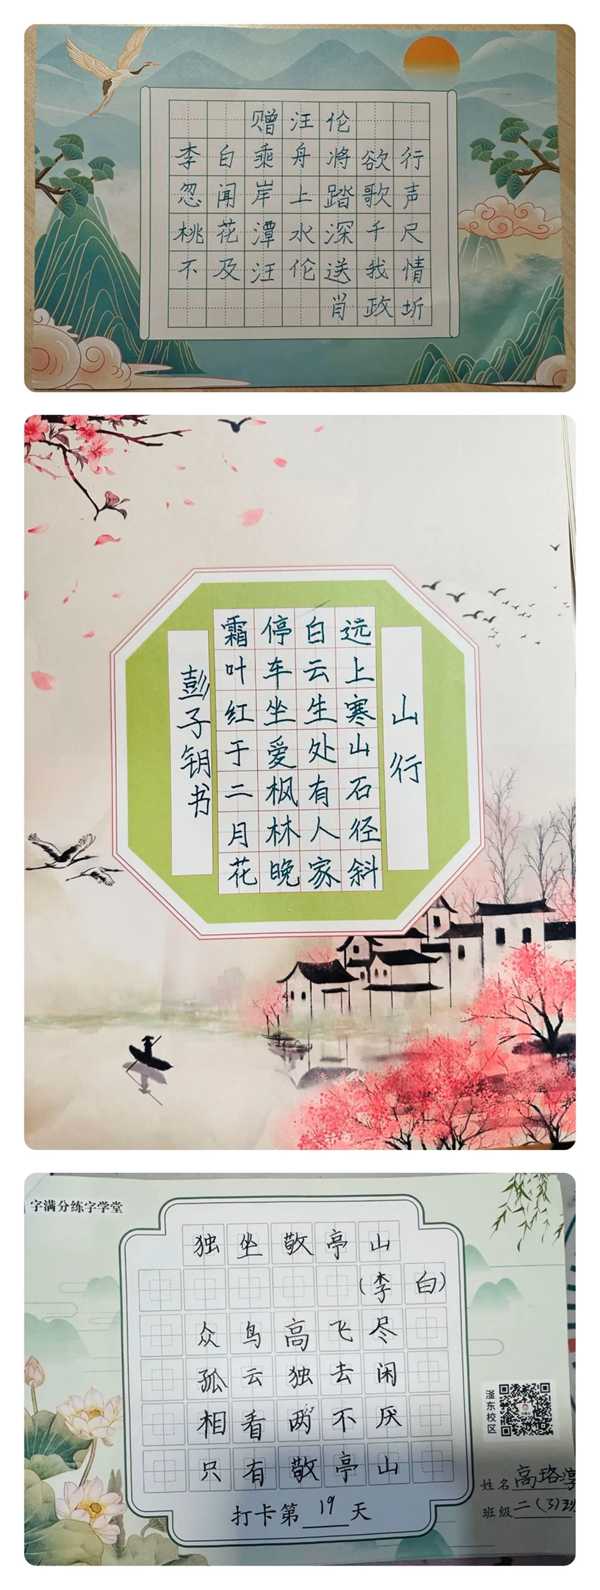 赠汪伦
李白乘舟将欲行
忽闻岸上踏歌声
桃花潭水深千尺
不及汪伦送我情
肖政圻
山行
远上寒山石径斜
白云生处有人家
停车坐爱枫林晚
霜叶红于二月花
彭子钥书
字满分练字学堂
独坐敬亭山
(李白)
众鸟高飞尽
孤云独去闲
相看两不厌
只有敬亭山
打卡第19天
滏东校区
姓名高珞淳
班级二(3)班